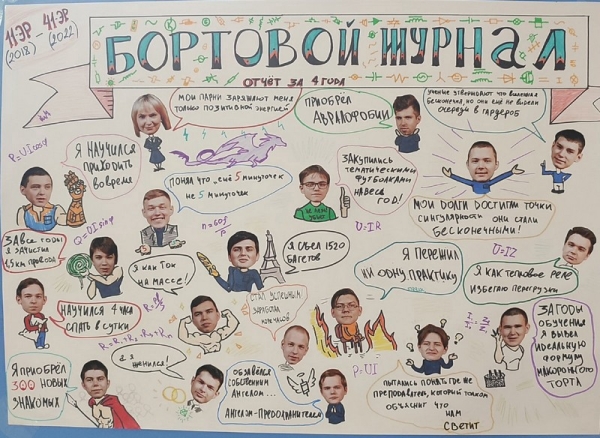 11-ЭР - 41-ЭР
(2018) (2022)
БОРТОВОЙ ЖУРНАЛ
ОТЧЁТ ЗА 4 ГОДА
МОИ ПАРНИ ЗАРЯЖАЮТ МЕНЯ
ТОЛЬКО ПОЗИТИВНОЙ ЭНЕРГИЕЙ
ПРИОБРЁЛ
АВРАЛОФОБИИ
УЧЕНЫЕ УТВЕРЖДАЮТ ЧТО ВСЕЛЕННАЯ
БЕСКОНЕЧНА, НО ОНИ ЕЩЁ НЕ ВИДЕЛИ
ОЧЕРЕДИ В ГАРДЕРОБ
P=UIcosφ
Я НАУЧИЛСЯ
ПРИХОДИТЬ
ВОВРЕМЯ
ПОНЯЛ ЧТО „ЕЩЁ 5 МИНУТОЧЕК"
НЕ 5 МИНУТОЧЕК
ЗАКУПИЛИСЬ
ТЕМАТИЧЕСКИМИ
ФУТБОЛКАМИ
НА ВЕСЬ
ГОД!
U=IR
МОИ ДОЛГИ ДОСТИГЛИ ТОЧКИ
СИНГУЛЯРНОСТИ ОНИ СТАЛИ
БЕСКОНЕЧНЫМИ!
Q=UIsinφ
ЗА ВСЕ ГОДЫ
Я ЗАЧИСТИЛ
1,5 КМ ПРОВОДА
Я КАК ТОК
НА МАССЕ!
Я СЪЕЛ 1520
БАГЕТОВ
Я ПЕРЕЖИЛ
НИ ОДНУ ПРАКТИКУ
U=IZ
Я КАК ТЕПЛОВОЕ РЕЛЕ
ИЗБЕГАЮ ПЕРЕГРУЗКИ
НАУЧИЛСЯ 4 ЧАСА
СПАТЬ В СУТКИ
СТАЛ УСПЕШНЫМ
ЗАРАБОТАЛ
ЗА ГОДЫ
ОБУЧЕНИЯ
Я ВЫВЕЛ
ИДЕАЛЬНУЮ
ФОРМУЛУ
МАКАРОННОГО
ТОРТА
Я ПРИОБРЁЛ
300 НОВЫХ
ЗНАКОМЫХ
А Я
ЖЕНИЛСЯ!
ОБЗАВЁЛСЯ
СОБСТВЕННЫМ
АНГЕЛОМ...
АНГЕЛОМ-ПРЕДОХРАНИТЕЛЕМ
P=UI
ПЫТАЮСЬ ПОНЯТЬ ГДЕ ЖЕ
ПРЕПОДАВАТЕЛЬ, КОТОРЫЙ ТОЛКОМ
ОБЪЯСНИТ ЧТО
НАМ
СВЕТИТ